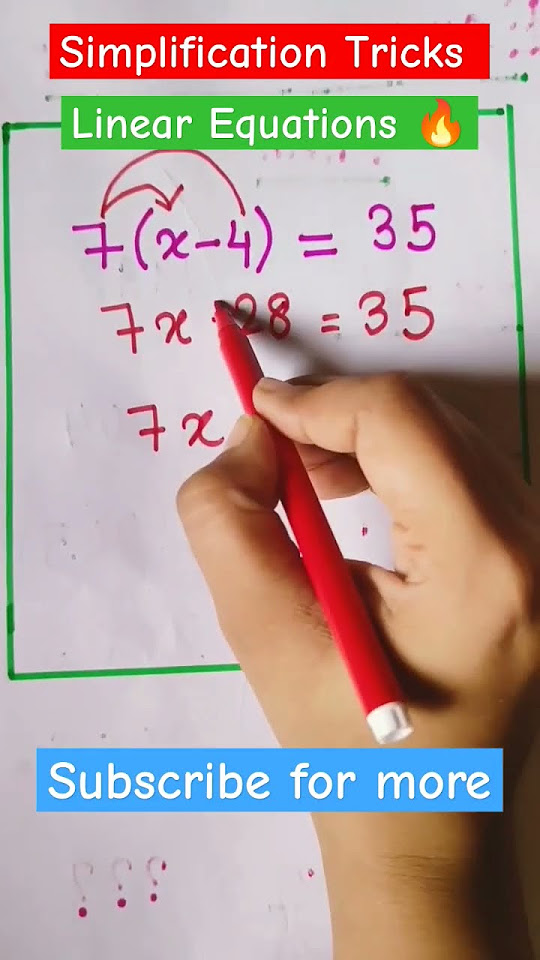 Simplification Tricks
Linear Equations 🔥
7(x-4) = 35
7x -28 = 35
7x
Subscribe for more
???